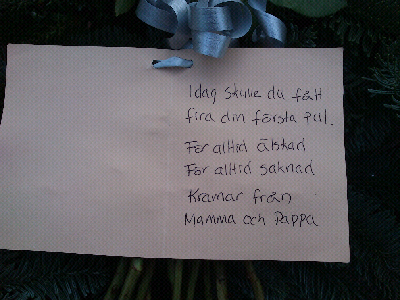 Idag skulle du fått
fira din första jul.
För alltid älskad
För alltid saknad
Kramar från
Mamma och Pappa